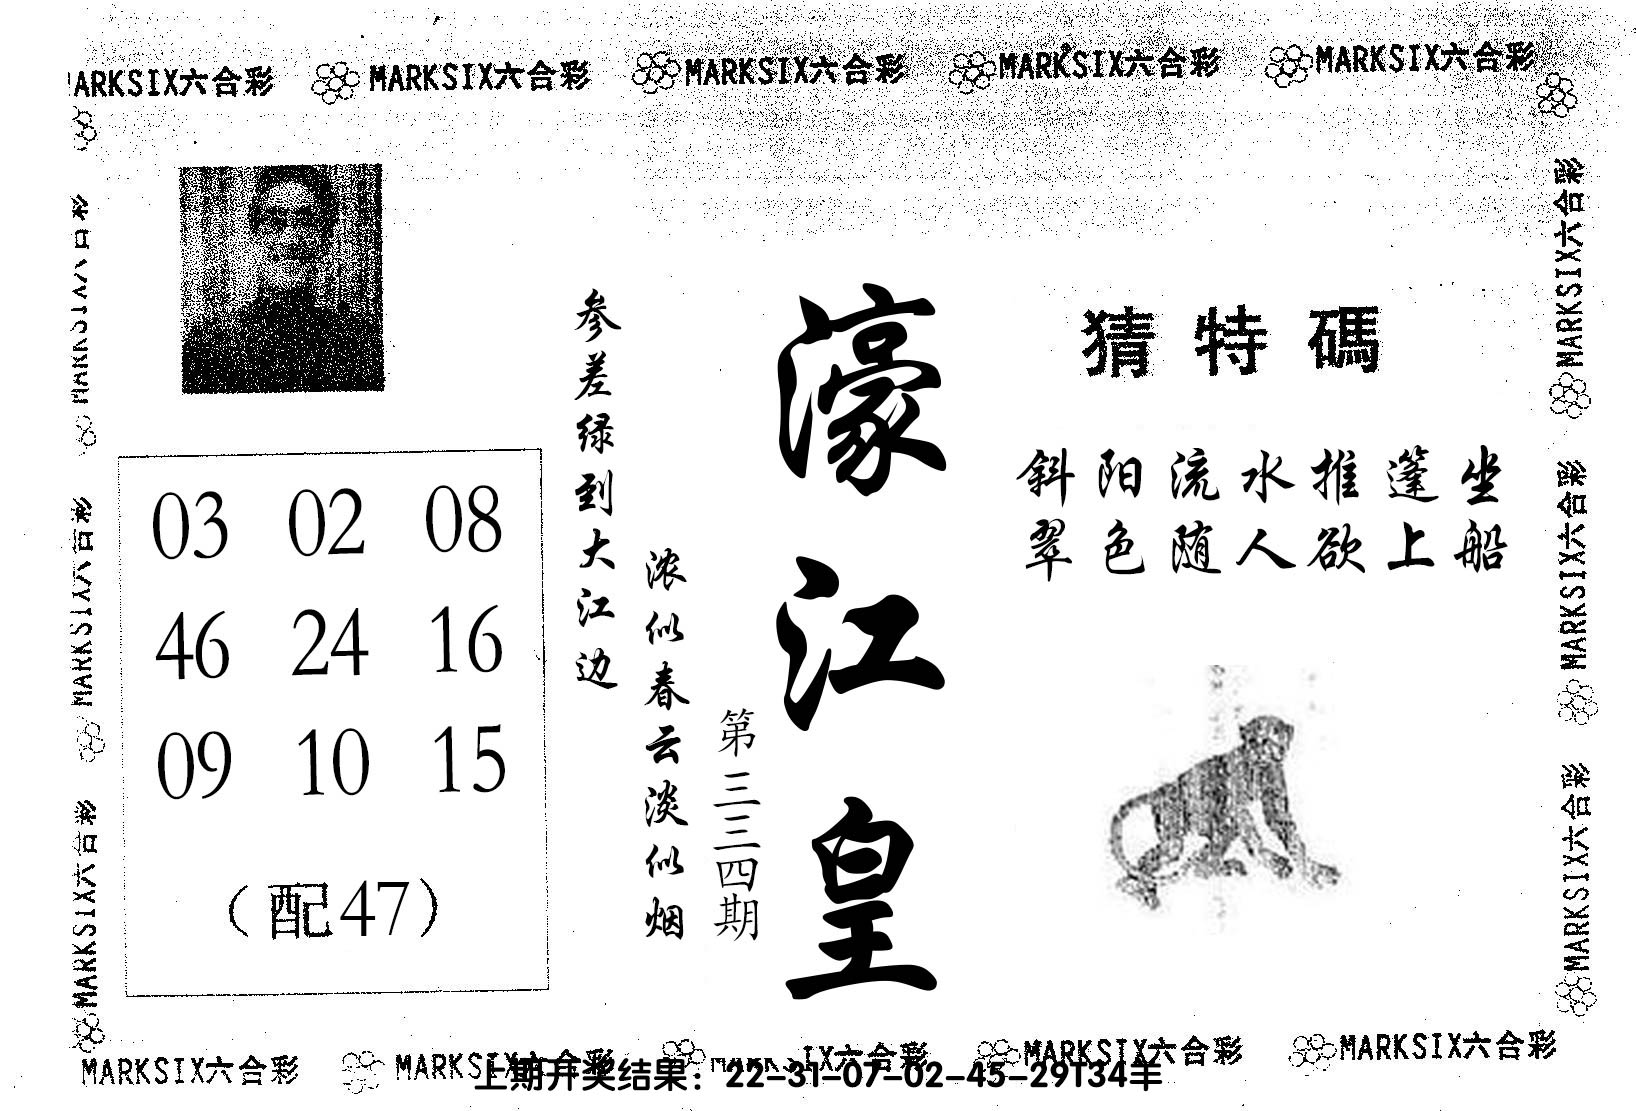 MARKSIX六合彩 MARKSIX六合彩 MARKSIX六合彩 MARKSIX六合彩
MARKSIX六合彩
MARKSIX六合彩
MARKSIX六合彩
MARKSIX六合彩
MARKSIX六合彩
猜特碼
斜阳流水推篷坐
翠色随人欲上船
濠江皇
第三三四期
参差绿到大江边
浓似春云淡似烟
03 02 08
46 24 16
09 10 15
（配47）
MARKSIX六合彩 MARKSIX六合彩 MARKSIX六合彩 MARKSIX六合彩
上期开奖结果：22-31-07-02-45-29T34羊